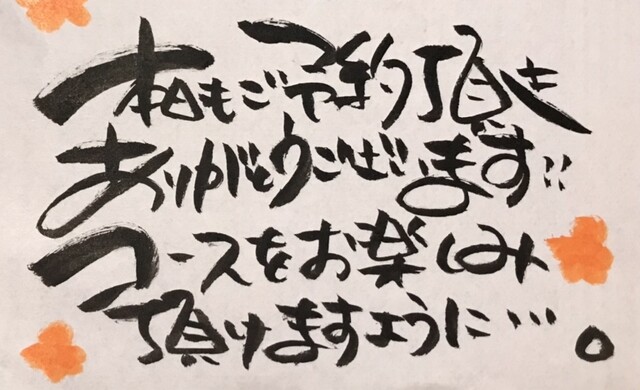 本日もご予約頂き
ありがとうございます!!
コースをお楽しみ
頂けますように…。